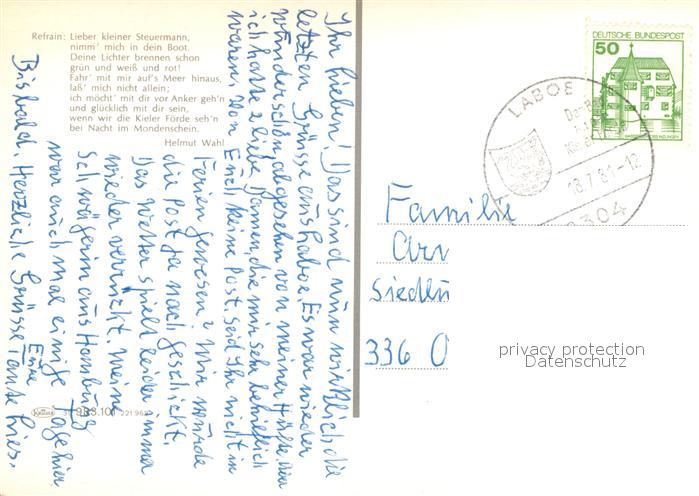 Refrain: Lieber kleiner Steuermann,
nimm' mich in dein Boot.
Deine Lichter brennen schon
grün und weiß und rot!
Fahr' mit mir auf's Meer hinaus,
laß' mich nicht allein;
ich möcht' mit dir vor Anker geh'n
und glücklich mit dir sein,
wenn wir die Kieler Förde seh'n
bei Nacht im Mondenschein.
Helmut Wahl
Ihr Lieben! Das sind nun wirklich die
letzten Grüsse aus Laboe. Es war wieder
wunderschön, abgesehen von meiner Hüfte. Aber
ich hatte 2 liebe Damen, die mir sehr behilflich
waren. Von Euch keine Post. Seid Ihr nicht in
Ferien gewesen? Mir wurde
die Post ja nach geschickt.
Das Wetter spielt leider immer
wieder verrückt. Meine
Schwägerin aus Hamburg
war auch mal einige Tage hier
Bis bald. Herzliche Grüsse
Eure
Tante
DEUTSCHE BUNDESPOST
50
LABOE
18.7.81-12
2304
Familie
Arn
Siedlu
336 O
privacy protection
Datenschutz
Krüger
983.10